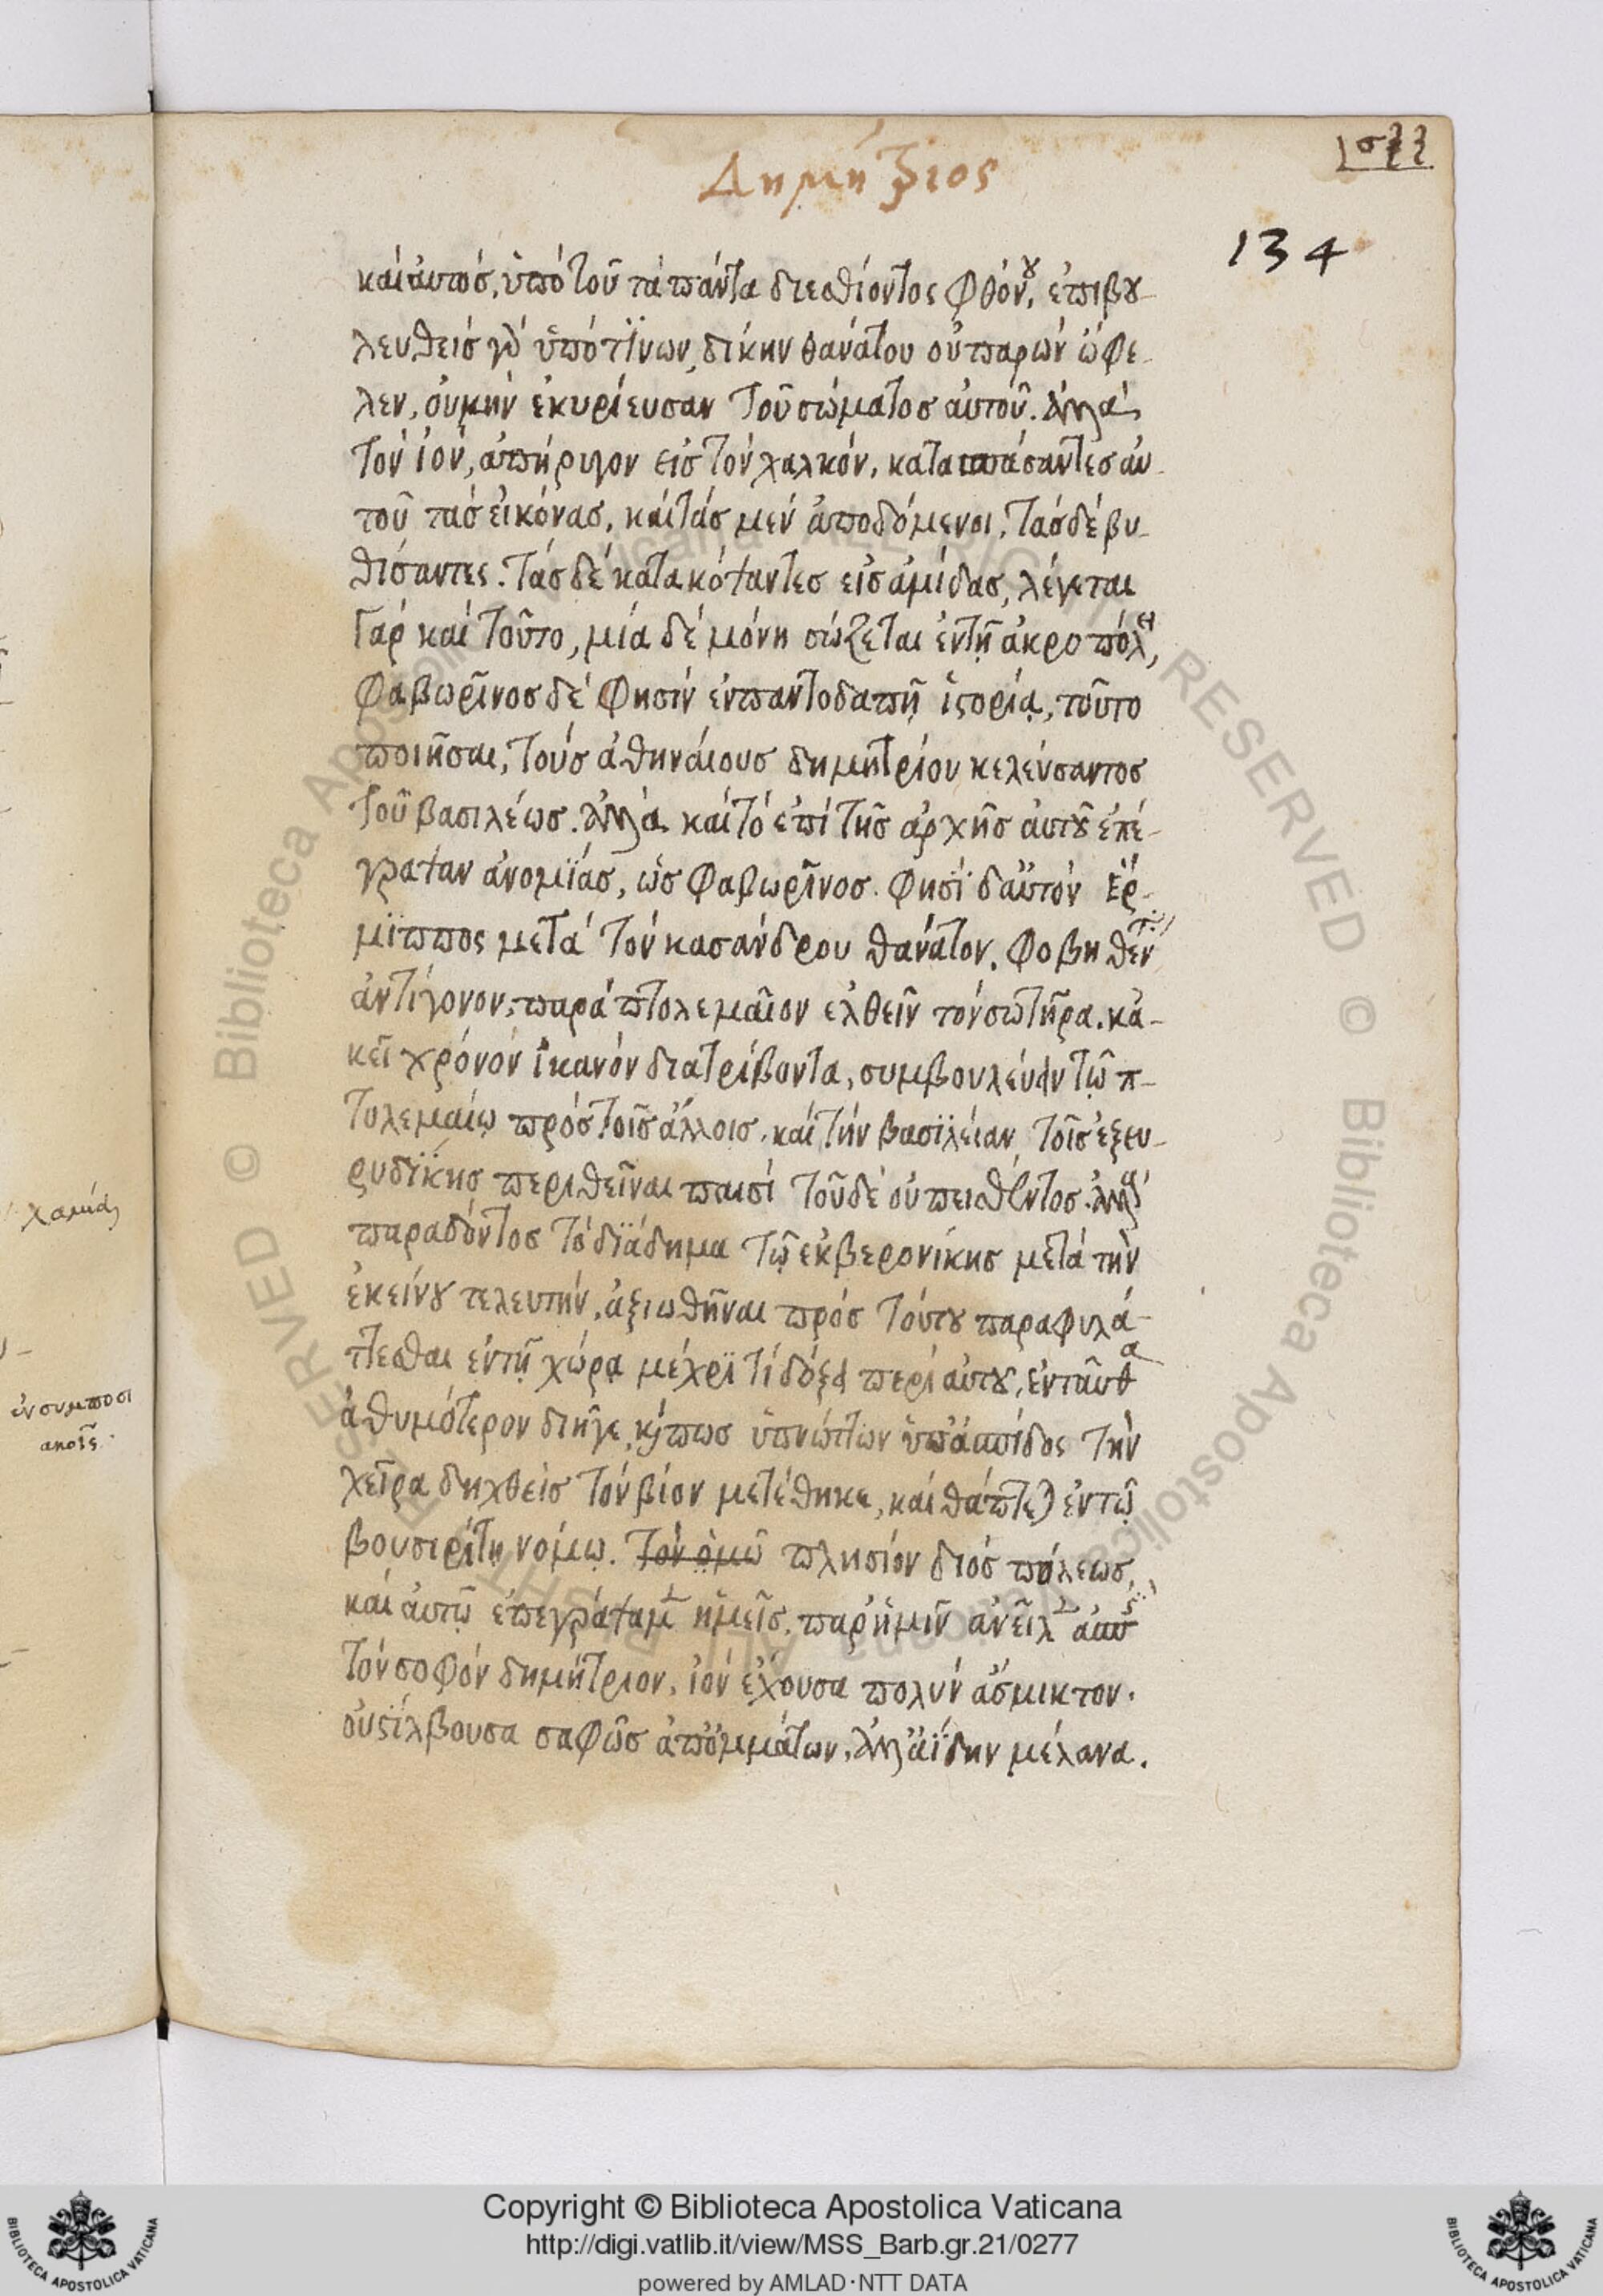 Δημήτριος
σξζ
134
καὶ αὐτὸς, ὑπὸ τοῦ τὰ πάντα διεσθίοντος φθόνου, ἐπιβου-
λευθεὶς γὰρ ὑπό τϊνων, δίκην θανάτου οὐ παρὼν ὦφε-
λεν, οὐ μὴν ἐκυρίευσαν τοῦ σώματος αὐτοῦ. ἀλλὰ
τὸν ἰὸν, ἀπήρυγον εἰς τὸν χαλκὸν, κατασπάσαντες αὐ-
τοῦ τὰς εἰκόνας, καὶ τὰς μὲν ἀποδόμενοι, τὰς δὲ βυ-
θίσαντες. τὰς δὲ κατακόψαντες εἰς ἀμίδας, λέγεται
γὰρ καὶ τοῦτο, μία δὲ μόνη σώζεται ἐν τῇ ἀκροπόλει,
φαβωρῖνος δέ φησὶν ἐν παντοδαπῇ ἱστορίᾳ, τοῦτο
ποιῆσαι, τοὺς ἀθηναίους δημητρίου κελεύσαντος
τοῦ βασιλέως. ἀλλὰ καὶ τὸ ἐπὶ τῆς ἀρχῆς αὐτοῦ ἐπέ-
γραψαν ἀνομϊάς, ὡς φαβωρῖνος. φησῒ δ' αὐτὸν ἕρ-
μϊππος μετὰ τὸν κασάνδρου θάνατον. φοβηθέντ'
ἀντίγονον, παρὰ πτολεμαῖον ἐλθεῖν τὸν σωτῆρα. κἀ-
κεῖ χρόνον ἱκανὸν διατρίβοντα, συμβουλεύειν τῷ π-
τολεμαίῳ πρὸς τοῖς ἄλλοις. καὶ τὴν βασϊλείαν, τοῖς ἐξ ευ-
ρυδϊκης περιθεῖναι παισί τοῦ δὲ οὐ πεισθέντος. ἀλλὰ
παραδόντος τὸ δϊάδημα τῷ ἐκ βερονίκης μετὰ τὴν
ἐκείνου τελευτὴν, ἀξιωθῆναι πρὸς τούτου παραφυλά-
ττεσθαι ἐν τῇ χώρᾳ μέχρϊ τὶ δόξει περὶ αὐτοῦ, ἐνταῦθα
ἀθυμότερον διῆγε, καί πως ὑπνώττων ὑπ' ἀσπίδος τὴν
χεῖρα δηχθεὶς τὸν βίον μετέθηκε, καὶ θάπτεται ἐν τῷ
βουσιρίτῃ νόμῳ. πλησίον διὸς πόλεως,
καὶ αὐτῷ ἐπεγράψαμεν ἡμεῖς. παρ' ἡμῖν ἀνεῖλεν ἀσπὶς
τὸν σοφὸν δημήτριον, ἰὸν ἔχουσα πολὺν ἄσμικτον.
οὐ στίλβουσα σαφῶς ἀπ' ὀμμάτων, ἀλλ' ἀΐδην μέλανα.
ἐν συμποσι
ακοῖς